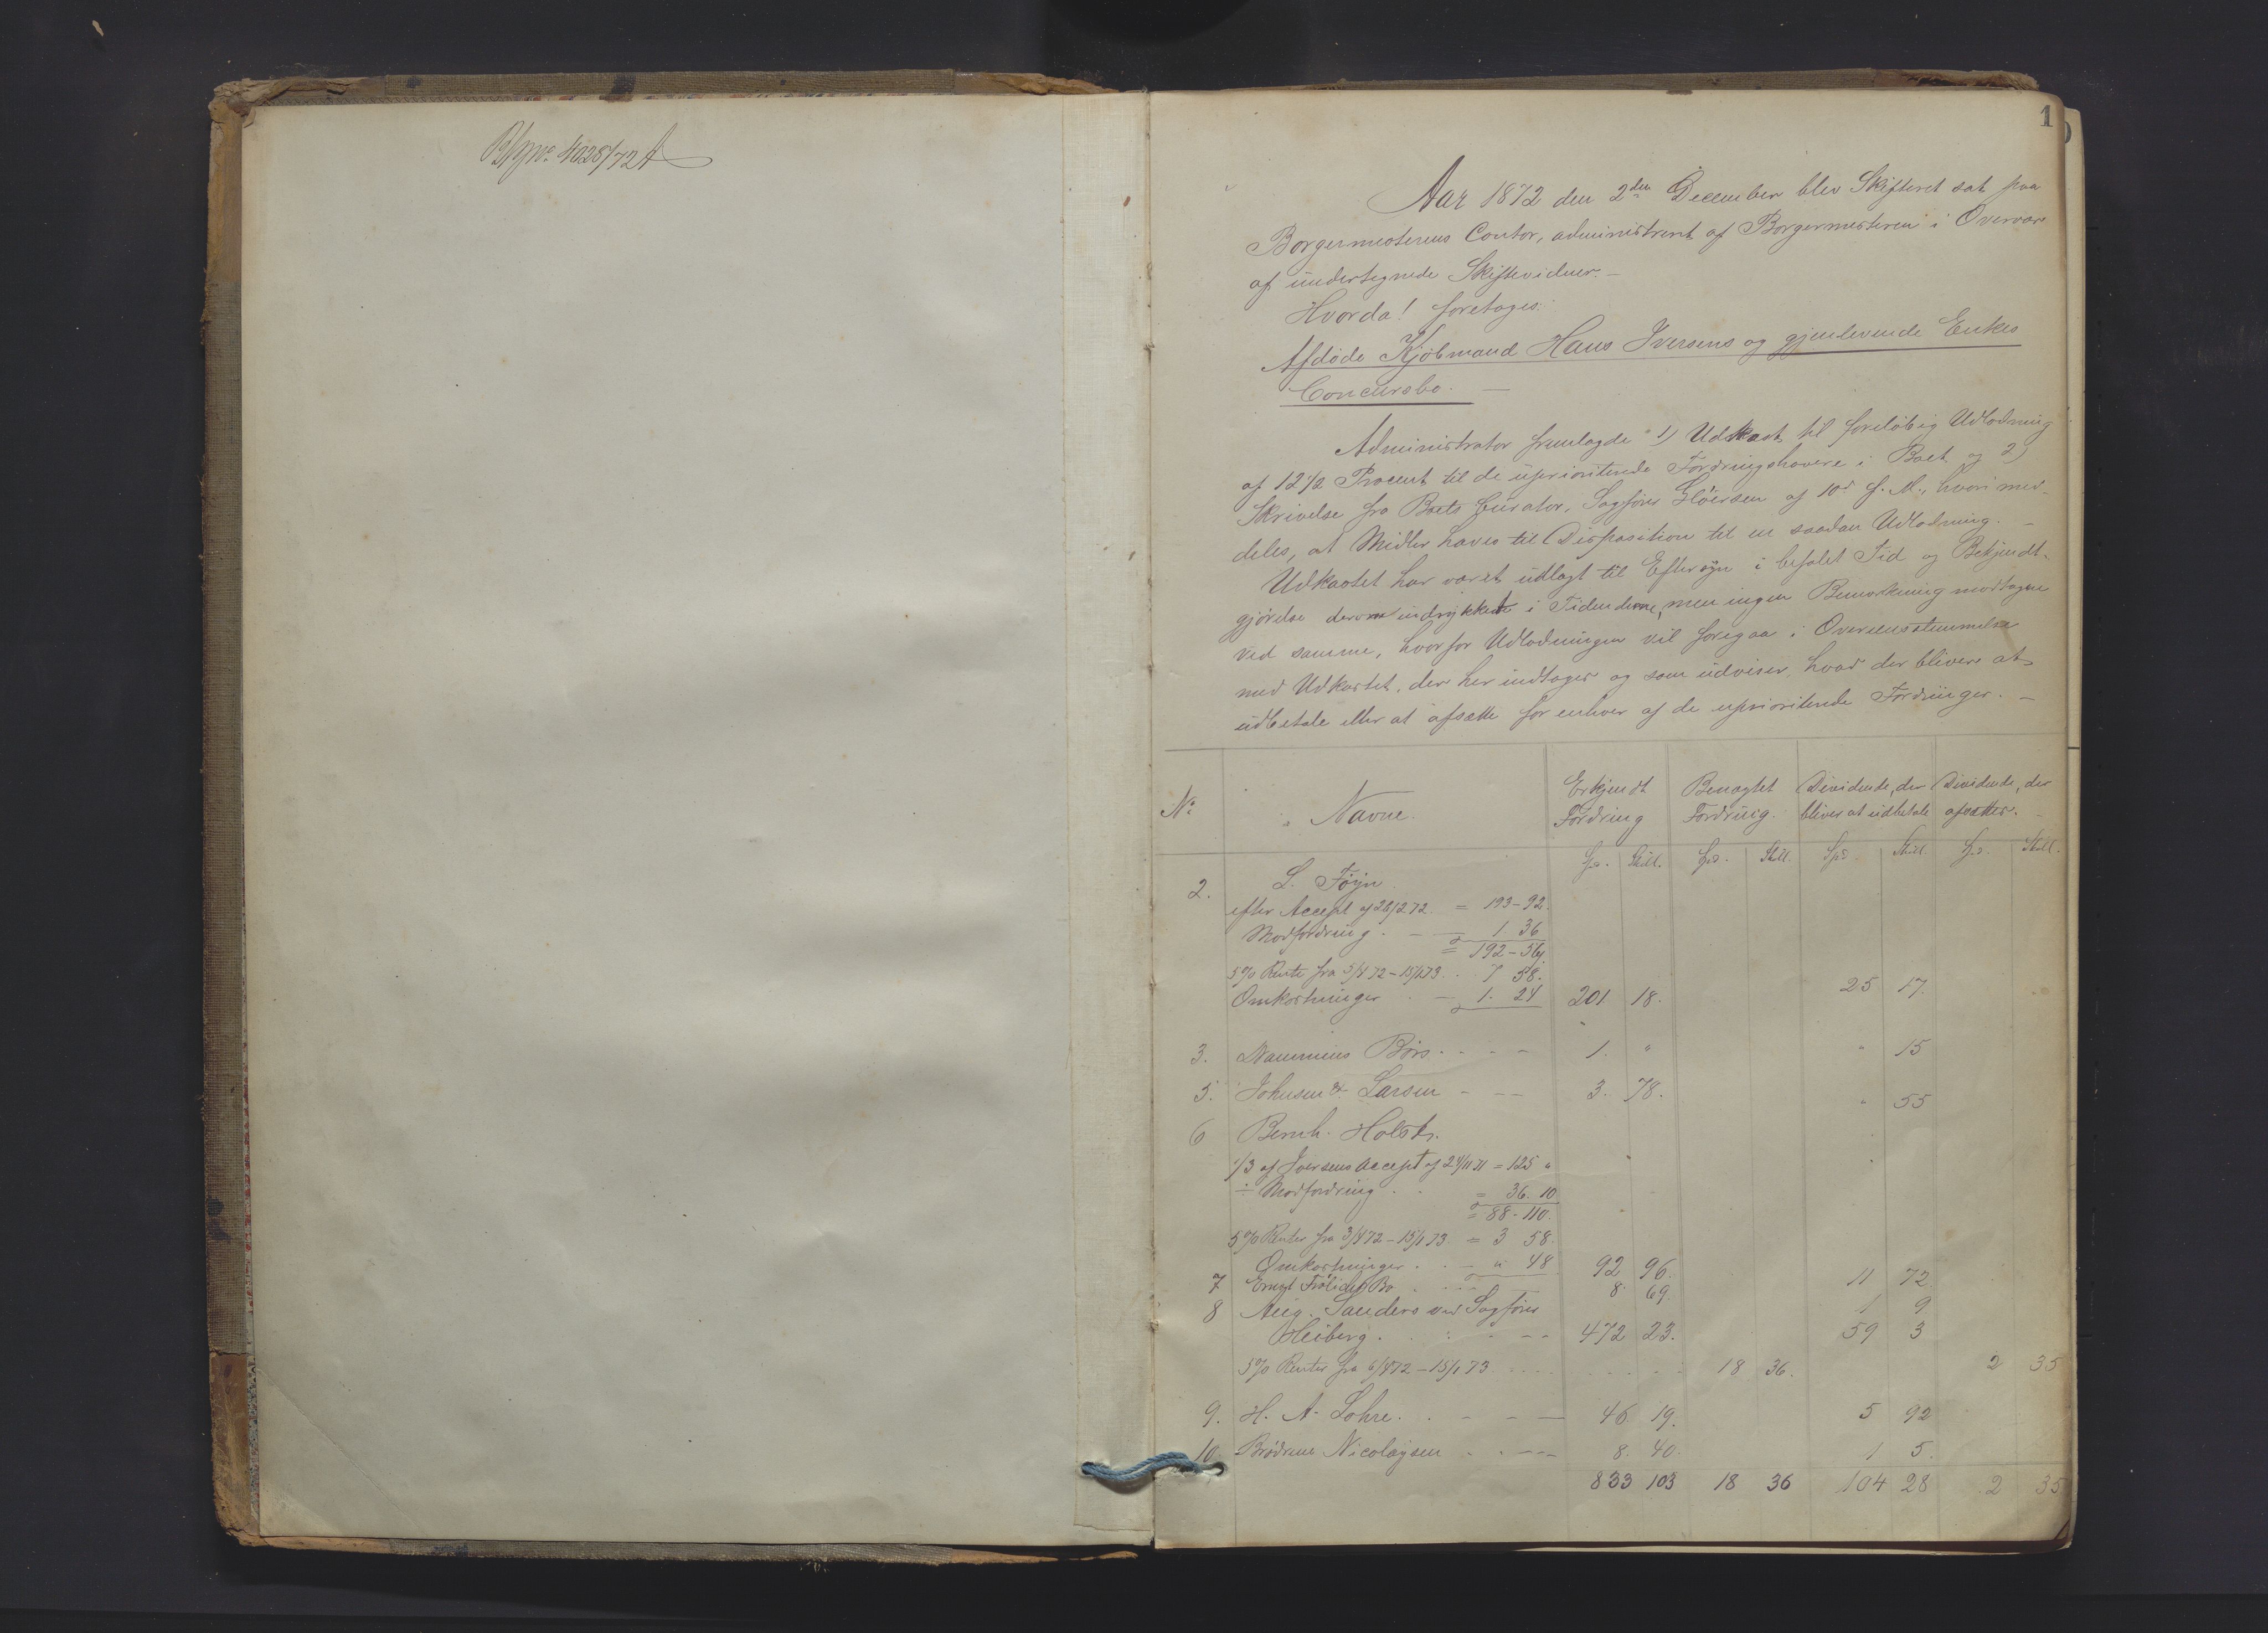 No. 4028/72 A
1
Aar 1872 den 2den December blev Skifteret sat paa
Borgermesterens Contor, administreret af Borgermesteren i Overvær
af undertegnede Skiftevidner. –
Hvorda! foretoges:
Afdøde Kjøbmand Hans Iversens og gjenlevende Enkes
Concursbo. –
Administrator fremlagde 1) Udkast til foreløbig Udlodning
af 12 1/2 Procent til de uprioriterede Fordringshavere i Boet og 2)
Skrivelse fra Boets Curator, Sagfører Gløersen af 10d f. M., hvori med-
deles, at Midler haves til Disposition til en saadan Udlodning. –
Udkastet har været udlagt til Eftersyn i befalet Tid og Bekjendt-
gjørelse derom indrykket i Tidenderne, men ingen Bemærkning modtagen
ved samme, hvorfor Udlodningen vil foregaa i Overensstemmelse
med Udkastet, der her indtages og som udviser, hvad der bliver at
udbetale eller at afsætte for enhver af de uprioriterede Fordringer. –
No. Navne. Erkjendt Fordring Benægtet Fordring. Dividende, der bliver at udbetale Dividende, der afsættes.
Spd. Skill. Spd. Skill. Spd. Skill. Spd. Skill.
2. L. Føyn
efter Accept af 28/2 72. = 193 – 92.
Modfordring . – – 1 36
= 192 – 56
5% Rente fra 5/4 72 – 15/1 73 . . 7 58.
Omkostninger . – 1. 24 201 18. 25 17.
3. Nammius Børs . . – – 1. " " 15
5. Johnsen & Larsen – – – 3. 78. " 55
6 Bernh. Holst.
1/3 af Iversens Accept af 24/11 71 = 125 "
÷ Modfordring . . = 36. 10
= 88 – 110.
5% Renter fra 3/4 72 – 15/1 73 = 3 58.
Omkostninger . . – " 48 92 96. 11 72.
7 Bo . . . 8. 69. 1 9
8 Aug. Sanders ved Sagfører
Heiberg . . . . – – 472 23. 59 3
5% Renter fra 6/4 72 – 15/1 73 . . . . 18 36. 2 35
9. H. A. Lohre . . – – – 46 19. 5 92
10. Brødrene Nicolaysen . . – – 8. 40. 1 5.
833 103 18 36 104 28 2 35